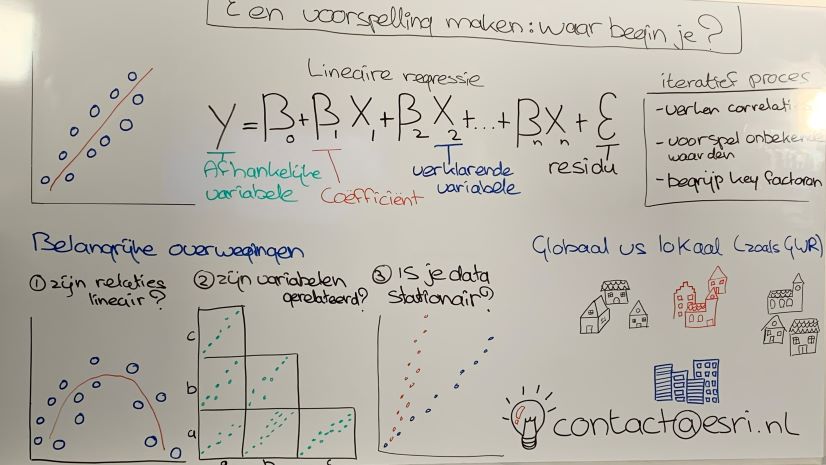 Een voorspelling maken: waar begin je?
Lineaire regressie
Y = β₀ + β₁X₁ + β₂X₂ + ... + βₙXₙ + ε
Afhankelijke variabele
Coëfficiënt
verklarende variabele
residu
iteratief proces
- verken correlatie
- voorspel onbekende
waarden
- begrijp key factoren
Belangrijke overwegingen
① zijn relaties
lineair?
② zijn variabelen
gerelateerd?
③ Is je data
stationair?
c
b
a
a b c
Globaal vs lokaal (zoals GWR)
contact@esri.nl